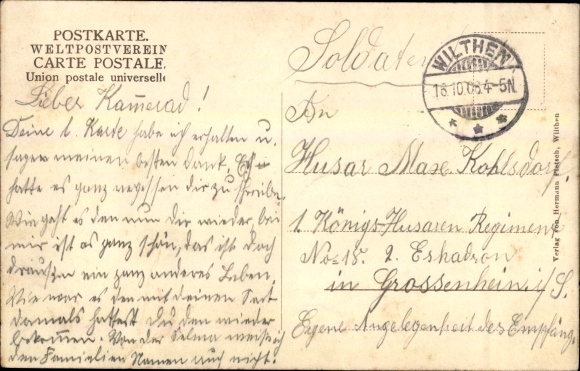 POSTKARTE.
WELTPOSTVEREIN
CARTE POSTALE.
Union postale universelle
Soldaten
WILTHEN
16.10.08.4-5N.
Lieber Kamerad!
Deine l. Karte habe ich erhalten u.
sage meinen besten Dank.
hatte es ganz vergessen dir zu schreiben.
Wie geht es den nun dir wieder, bei
mir ist es ganz schön, das ist doch
draußen ein ganz anderes Leben.
Wie war es den mit deinen
damals hattest Du den wieder
bekommen. Von der Selma weis ich
den Familien Namen auch nicht.
An
Husar Max Kohlsdorf
1. Königs-Husaren Regiment
No. 18. 2. Eskadron
in Grossenhein i/S.
Eigene Angelegenheit des Empfäng.
Verlag von Hermann Pietsch, Wilthen